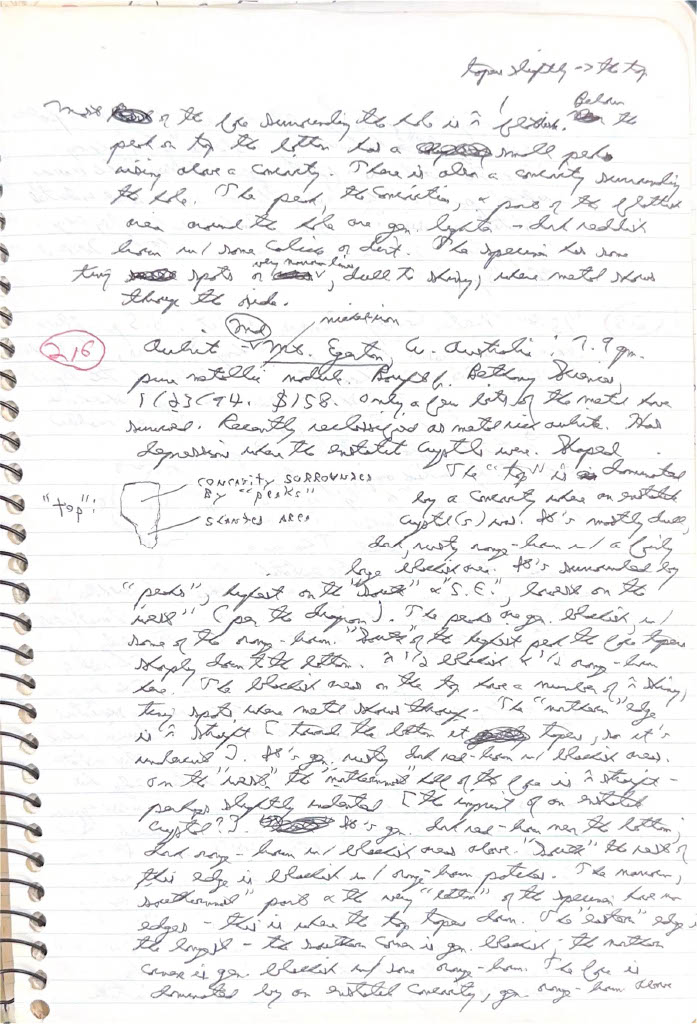 taper slightly -> the top
Below
most of the face surrounding the hole is ≈ flattish. the
peak on top the bottom has a small peak
rising above a concavity. There is also a concavity surrounding
the hole. The peak, the concavities, & part of the flattish
area around the hole are gen. lighter - dark reddish
brown w/ some caliche or dirt. The specimen has some
very narrow lines
tiny spots or , dull to shiny, where metal shows
through the oxide.
2nd
216 Aubrite - Mt. Egerton, W. Australia: 7.9 gm.
pure metallic nodule. Bought f. Bethany Sciences,
$158. Only a few lots of the metal have
survived. Recently reclassified as metal rich aubrite. Has
depressions where the enstatite crystals were. Shaped
The "top" is dominated
CONCAVITY SURROUNDED
BY "PEAKS"
by a concavity where an enstatite
"top":
SLANTED AREA
crystal(s) was. It's mostly dull,
dark, rusty orange-brown w/ a fairly
large blackish area. It's surrounded by
"peaks", highest on the "south" & "S.E.", lowest on the
"west" (per the diagram). The peaks are gen. blackish, w/
some of the orange-brown. "South" of the highest peak the face tapers
sharply down to the bottom. ≈ 1/2 blackish & 1/2 orange-brown
here. The blackish areas on the top have a number of ≈ shiny,
tiny spots where metal shows through. The "northern" edge
is ≈ straight [toward the bottom it tapers, so it's
]. It's gen. rusty dark red-brown w/ blackish areas.
On the "west" the "northernmost" half of the face is ≈ straight -
perhaps slightly indented [the imprint of an enstatite
crystal?]. It's gen. dark red-brown near the bottom,
dark orange-brown w/ blackish areas above. "South" the rest of
this edge is blackish w/ orange-brown patches. The narrow,
"southernmost" part & the very "bottom" of the specimen have no
edges - this is where the top tapers down. The "eastern" edge is
the longest - the southern corner is gen. blackish; the northern
corner is gen. blackish w/ some orange-brown. The face is
dominated by an enstatite concavity, gen. orange-brown above